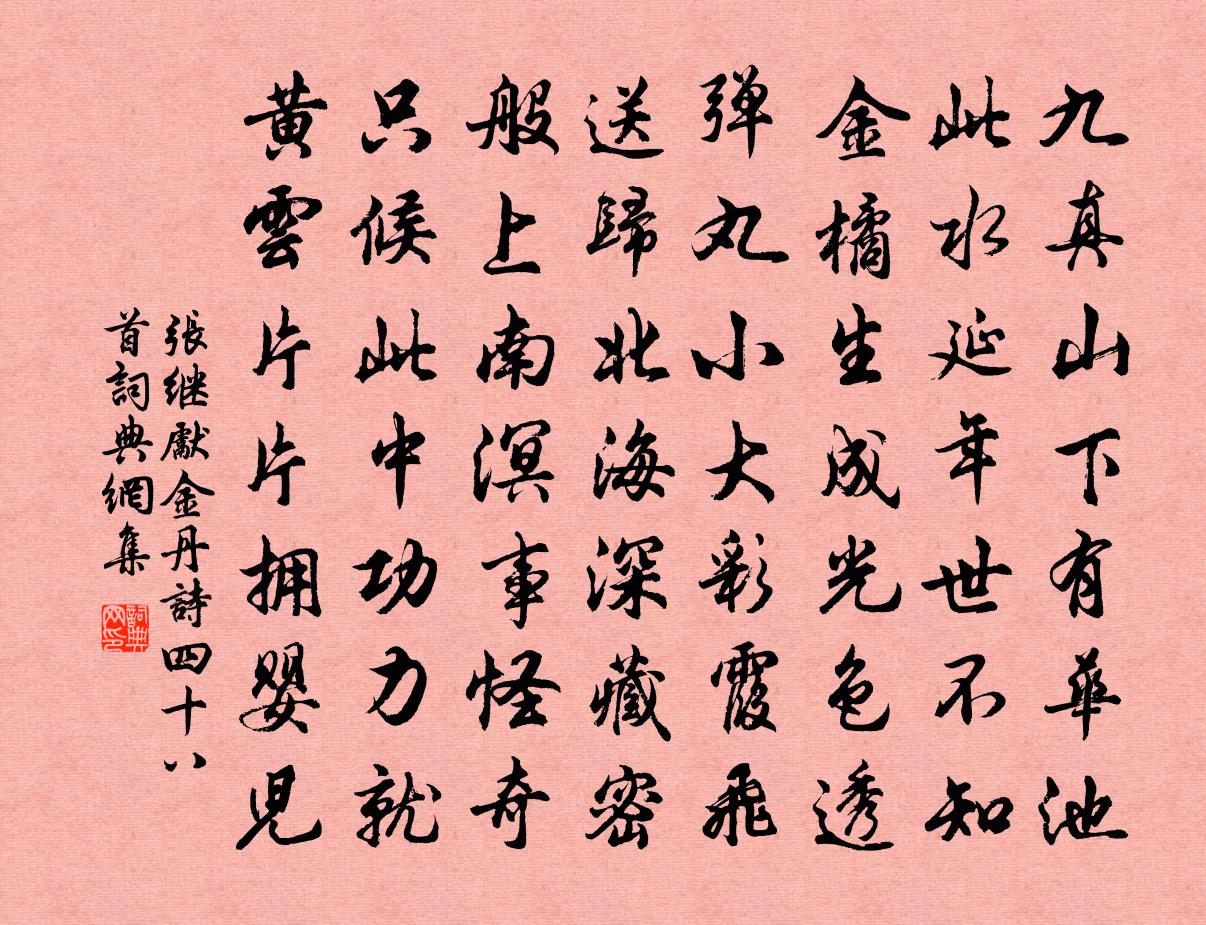 九真山下有華池
此水延年世不知
金橘生成光色透
弹丸小大彩霞飛
送歸北海深藏密
般上南溟事怪奇
只候此中功力就
黄雲片片拥嬰児
張继獻金丹詩四十八
首詞典網集
詞典网印